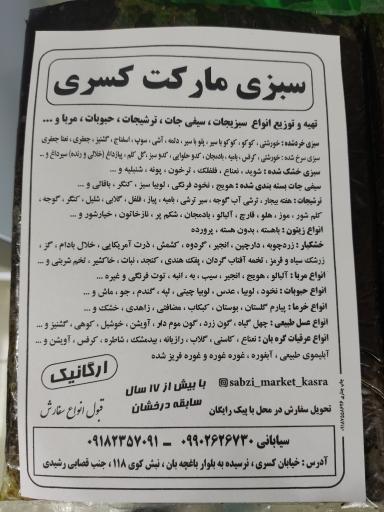 سبزی مارکت کسری
تهیه و توزیع انواع سبزیجات، سیفی جات، ترشیجات، حبوبات، مربا و ...
سبزی خردشده: خورشتی، کوکو، کوکو با سیر، پلو با سیر، دلمه، آشی، سوپ، اسفناج، گشنیز، جعفری، نعنا جعفری
سبزی سرخ شده: خورشتی، کرفس، بامیه، بادمجان، کدو حلوایی، کدو سبز، گل کلم، پیازداغ (خلالی و رنده) سیرداغ و...
سبزی خشک شده: شوید، نعناع، فلفلک، ترخون، پونه، شنبلیله و ...
سیفی جات بسته بندی شده: هویج، نخود فرنگی، لوبیا سبز، کنگر، باقالی و ...
ترشیجات: هفته بیجار، ترشی آب گوجه، سیر ترشی، بامیه، پیاز، فلفل، گلابی، شلیل، کنگر، گوجه،
کلم شور، موز، هلو، قارچ، آلبالو، بادمجان، شکم پر، نازخاتون، خیارشور و ...
انواع زیتون: باهسته، بدون هسته، پرورده
خشکبار: زردچوبه، دارچین، انجیر، گردوه، کشمش، ذرت آمریکایی، خلال بادام، گز،
زرشک سیاه و قرمز، تخمه آفتاب گردان، پفک هندی، کنجد، نبات، خاکشیر، تخم شربتی و ...
انواع مربا: آلبالو، هویج، انجیر، سیب، به، انبه، توت فرنگی و غیره ...
انواع حبوبات: نخود، لوبیا، عدس، لوبیا چیتی، لپه، گندم، جو، ماش و ...
انواع خرما: پیارم گلستان، بوستان، کبکاب، مضافتی، زاهدی، خشک و ...
انواع عسل طبیعی: چهل گیاه، گون زرد، گون موم دار، آویشن، خوشبل، کوهی، گشنیز و ...
انواع عرقیات گره بان: نعناع، کاسنی، گلاب، رازیانه، بیدمشک، شاطره، کرفس، آویشن و ...
آبلیموی طبیعی، آبغوره، غوره غوره و غوره فریز شده
ارگانیک
با بیش از ۱۷ سال
سابقه درخشان
@sabzi_market_kasra
قبول انواع سفارش
تحویل سفارش در محل با پیک رایگان
سیابانی ۰۹۹۰۲۶۲۶۷۳۰ – ۰۹۱۸۲۳۵۷۰۹۱
آدرس: خیابان کسری، نرسیده به بلوار باغچه بان، نبش کوی ۱۱۸، جنب قصابی رشیدی